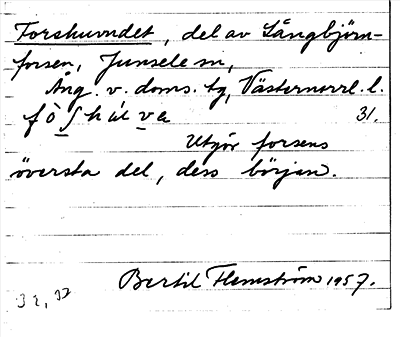 Forshuvudet, del av Långbjörn-
forsen, Junsele sn,
Ång. v. doms. tg, Västernorrl. l.
fòʃhúva 31.
Utgör forsens
översta del, dess början.
Bertil Flemström 1957.
32, 32